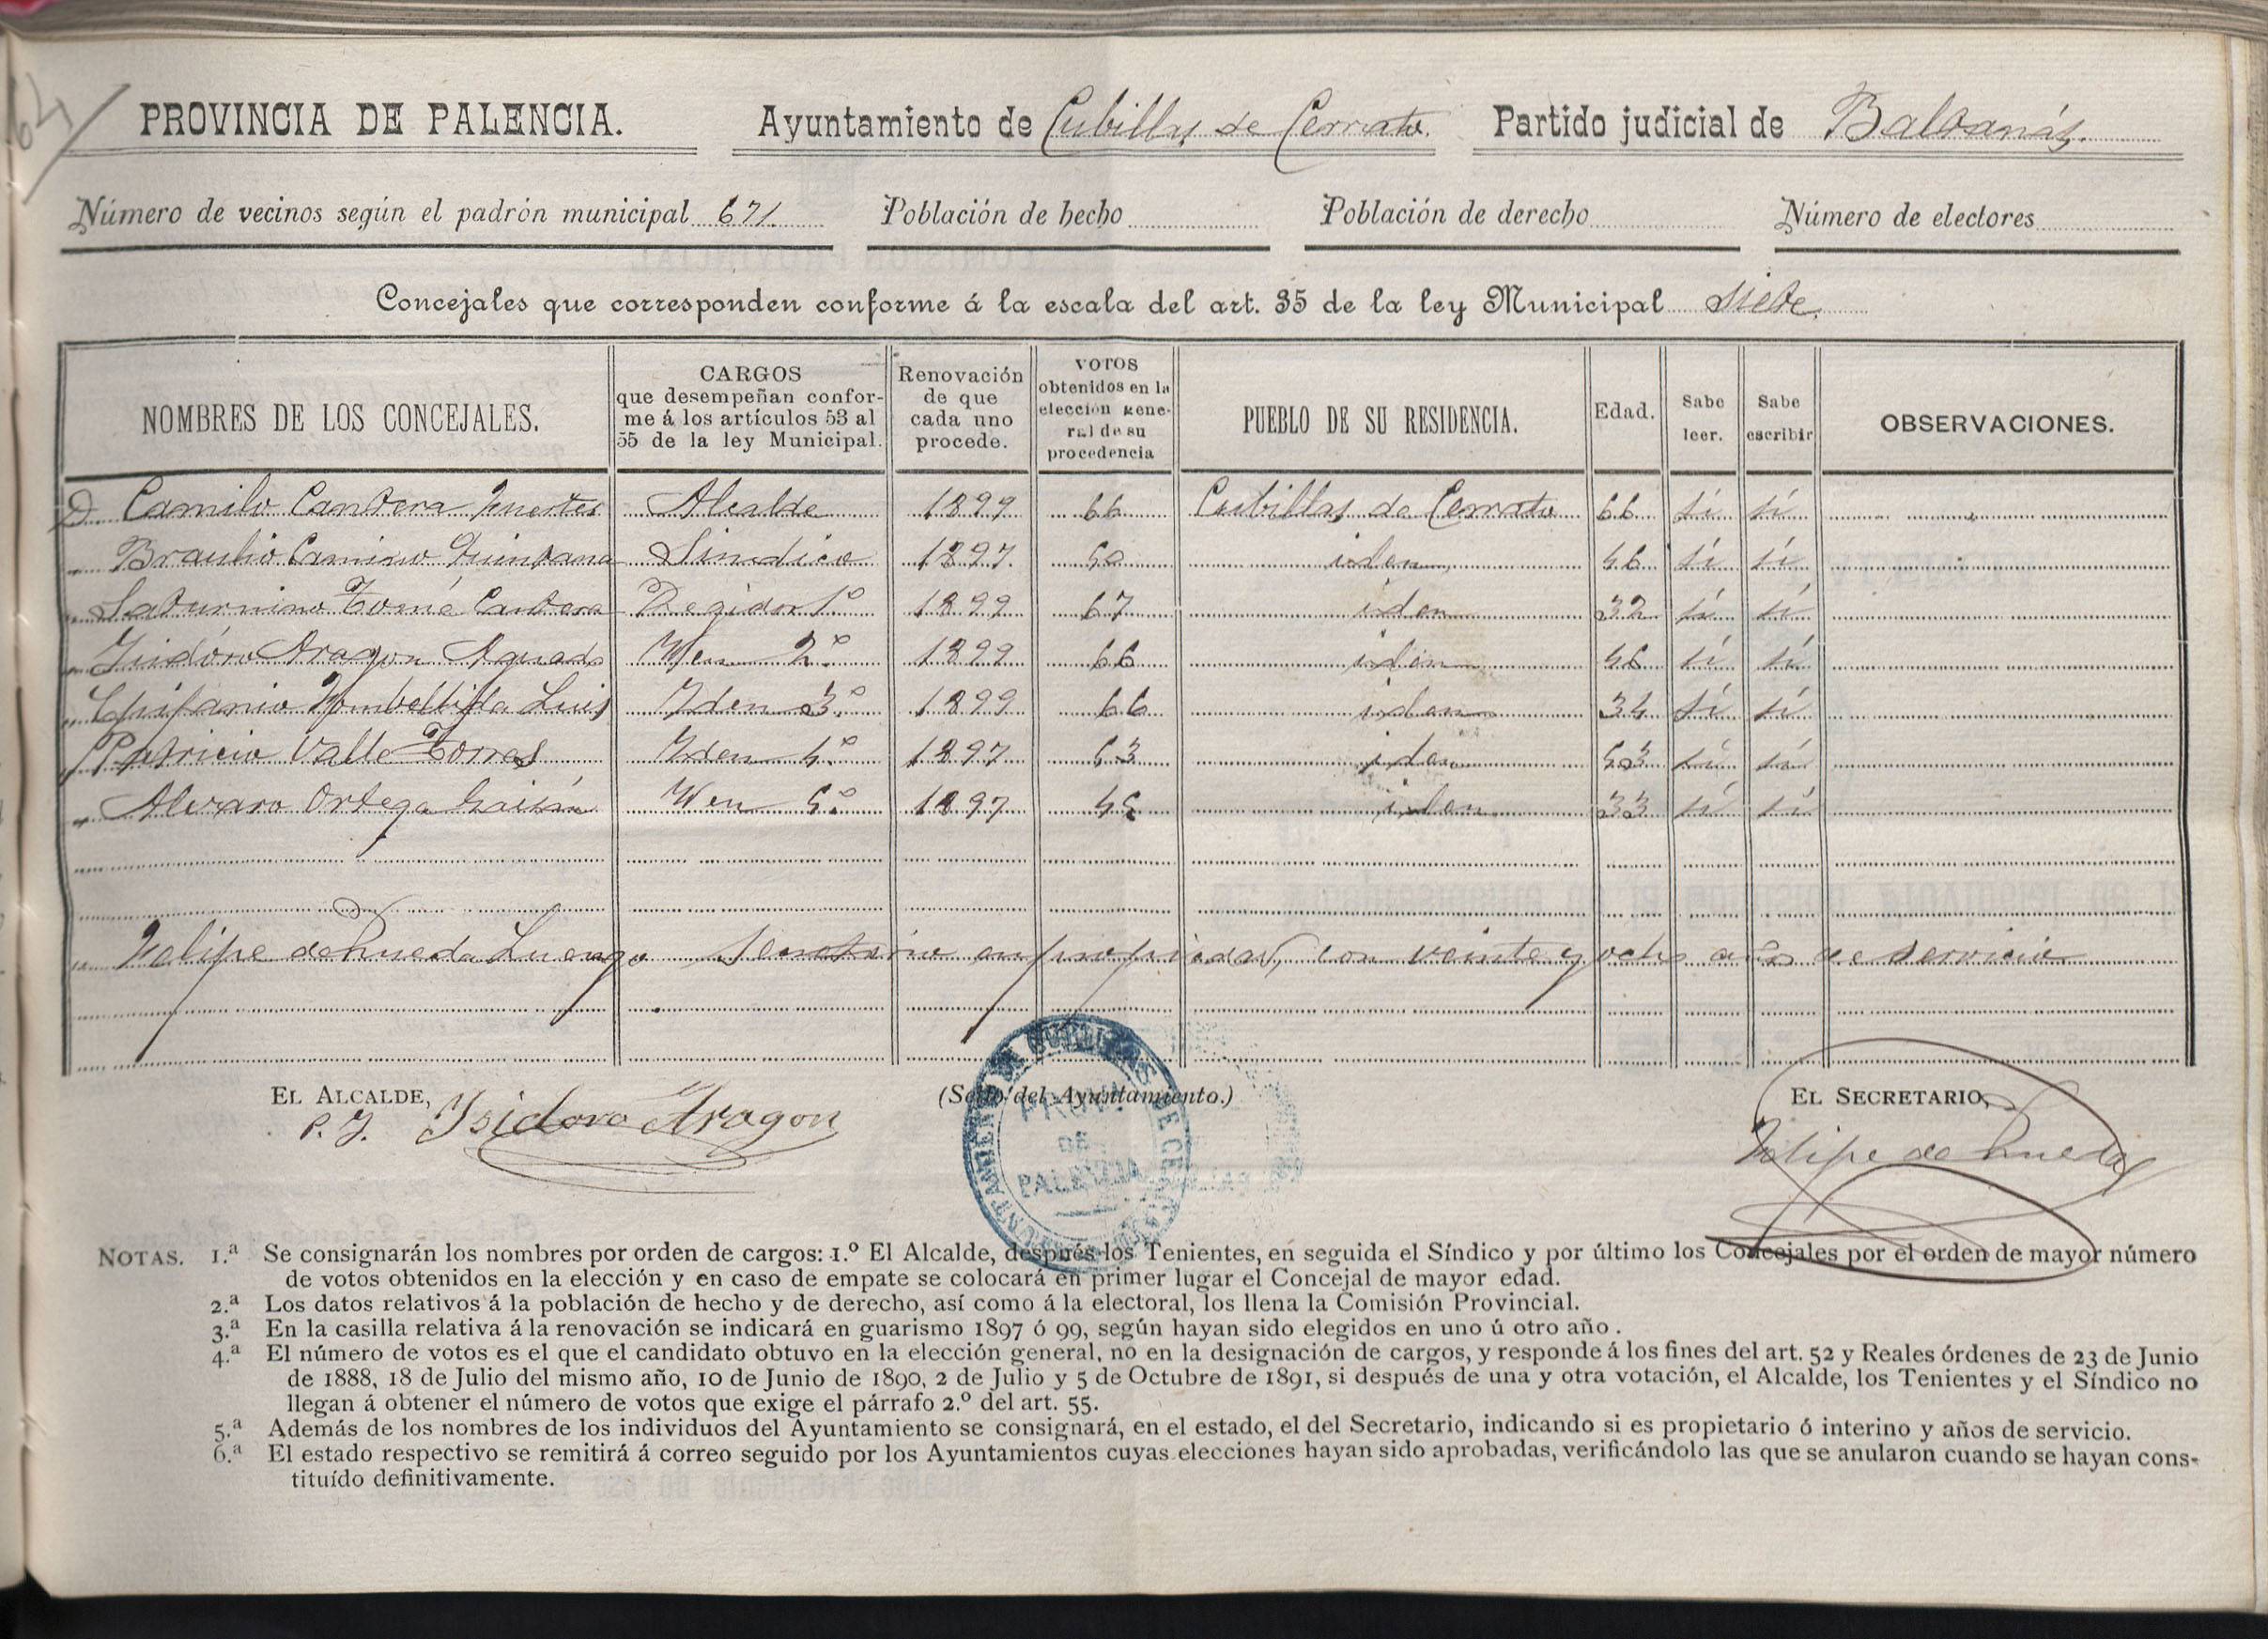 64
PROVINCIA DE PALENCIA. Ayuntamiento de Cubillas de Cerrato. Partido judicial de Baltanás.
Número de vecinos según el padrón municipal 671 Población de hecho Población de derecho Número de electores
Concejales que corresponden conforme á la escala del art. 35 de la ley Municipal siete.
NOMBRES DE LOS CONCEJALES. CARGOS que desempeñan conforme á los artículos 53 al 55 de la ley Municipal. Renovación de que cada uno procede. VOTOS obtenidos en la elección general de su procedencia PUEBLO DE SU RESIDENCIA. Edad. Sabe leer. Sabe escribir OBSERVACIONES.
D. Camilo Cantera Fuertes Alcalde 1899 66 Cubillas de Cerrato 66 sí sí
" Braulio Camino Quintana Sindico 1897. 50 iden 46 sí sí
" Saturnino Tomé Cantera Regidor 1º 1899 67 iden 32 sí sí
" Isidóro Aragon Aguado Iden 2º 1899 66 iden 46 sí sí
" Epifanio Luis Iden 3º 1899 66 iden 34 sí sí
" Patricio Valle Torres Iden 4º 1897 53 iden 53 sí sí
" Alvaro Ortega Iden 5º 1897 45 iden 33 sí sí
" Felipe de Rueda Luengo Secretario en propiedad, con veinte y ocho años de servicio
EL ALCALDE, (Sello del Ayuntamiento.) EL SECRETARIO,
P. I. Isidoro Aragon Felipe de Rueda
AYUNTAMIENTO DE CUBILLAS DE CERRATO
PROVª DE PALENCIA
NOTAS. 1.ª Se consignarán los nombres por orden de cargos: 1.º El Alcalde, después los Tenientes, en seguida el Síndico y por último los Concejales por el orden de mayor número
de votos obtenidos en la elección y en caso de empate se colocará en primer lugar el Concejal de mayor edad.
2.ª Los datos relativos á la población de hecho y de derecho, así como á la electoral, los llena la Comisión Provincial.
3.ª En la casilla relativa á la renovación se indicará en guarismo 1897 ó 99, según hayan sido elegidos en uno ú otro año.
4.ª El número de votos es el que el candidato obtuvo en la elección general, no en la designación de cargos, y responde á los fines del art. 52 y Reales órdenes de 23 de Junio
de 1888, 18 de Julio del mismo año, 10 de Junio de 1890, 2 de Julio y 5 de Octubre de 1891, si después de una y otra votación, el Alcalde, los Tenientes y el Síndico no
llegan á obtener el número de votos que exige el párrafo 2.º del art. 55.
5.ª Además de los nombres de los individuos del Ayuntamiento se consignará, en el estado, el del Secretario, indicando si es propietario ó interino y años de servicio.
6.ª El estado respectivo se remitirá á correo seguido por los Ayuntamientos cuyas elecciones hayan sido aprobadas, verificándolo las que se anularon cuando se hayan cons-
tituído definitivamente.